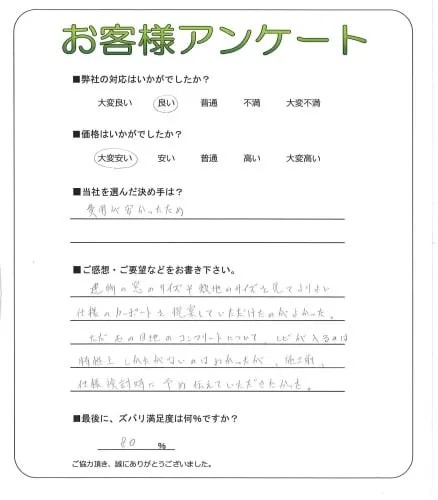 お客様アンケート
■弊社の対応はいかがでしたか？
大変良い 良い 普通 不満 大変不満
■価格はいかがでしたか？
大変安い 安い 普通 高い 大変高い
■当社を選んだ決め手は？
費用が安かったため
■ご感想・ご要望などをお書き下さい。
建物の窓のサイズや敷地のサイズを見てよりよい
仕様のカーポートを提案していただけたのがよかった。
ただ の目地のコンクリートについて、ヒビが入るのは
しかたがないのはわかったが、施工前、
仕様検討時に予め伝えていただきたかった。
■最後に、ズバリ満足度は何％ですか？
80 ％
ご協力頂き、誠にありがとうございました。